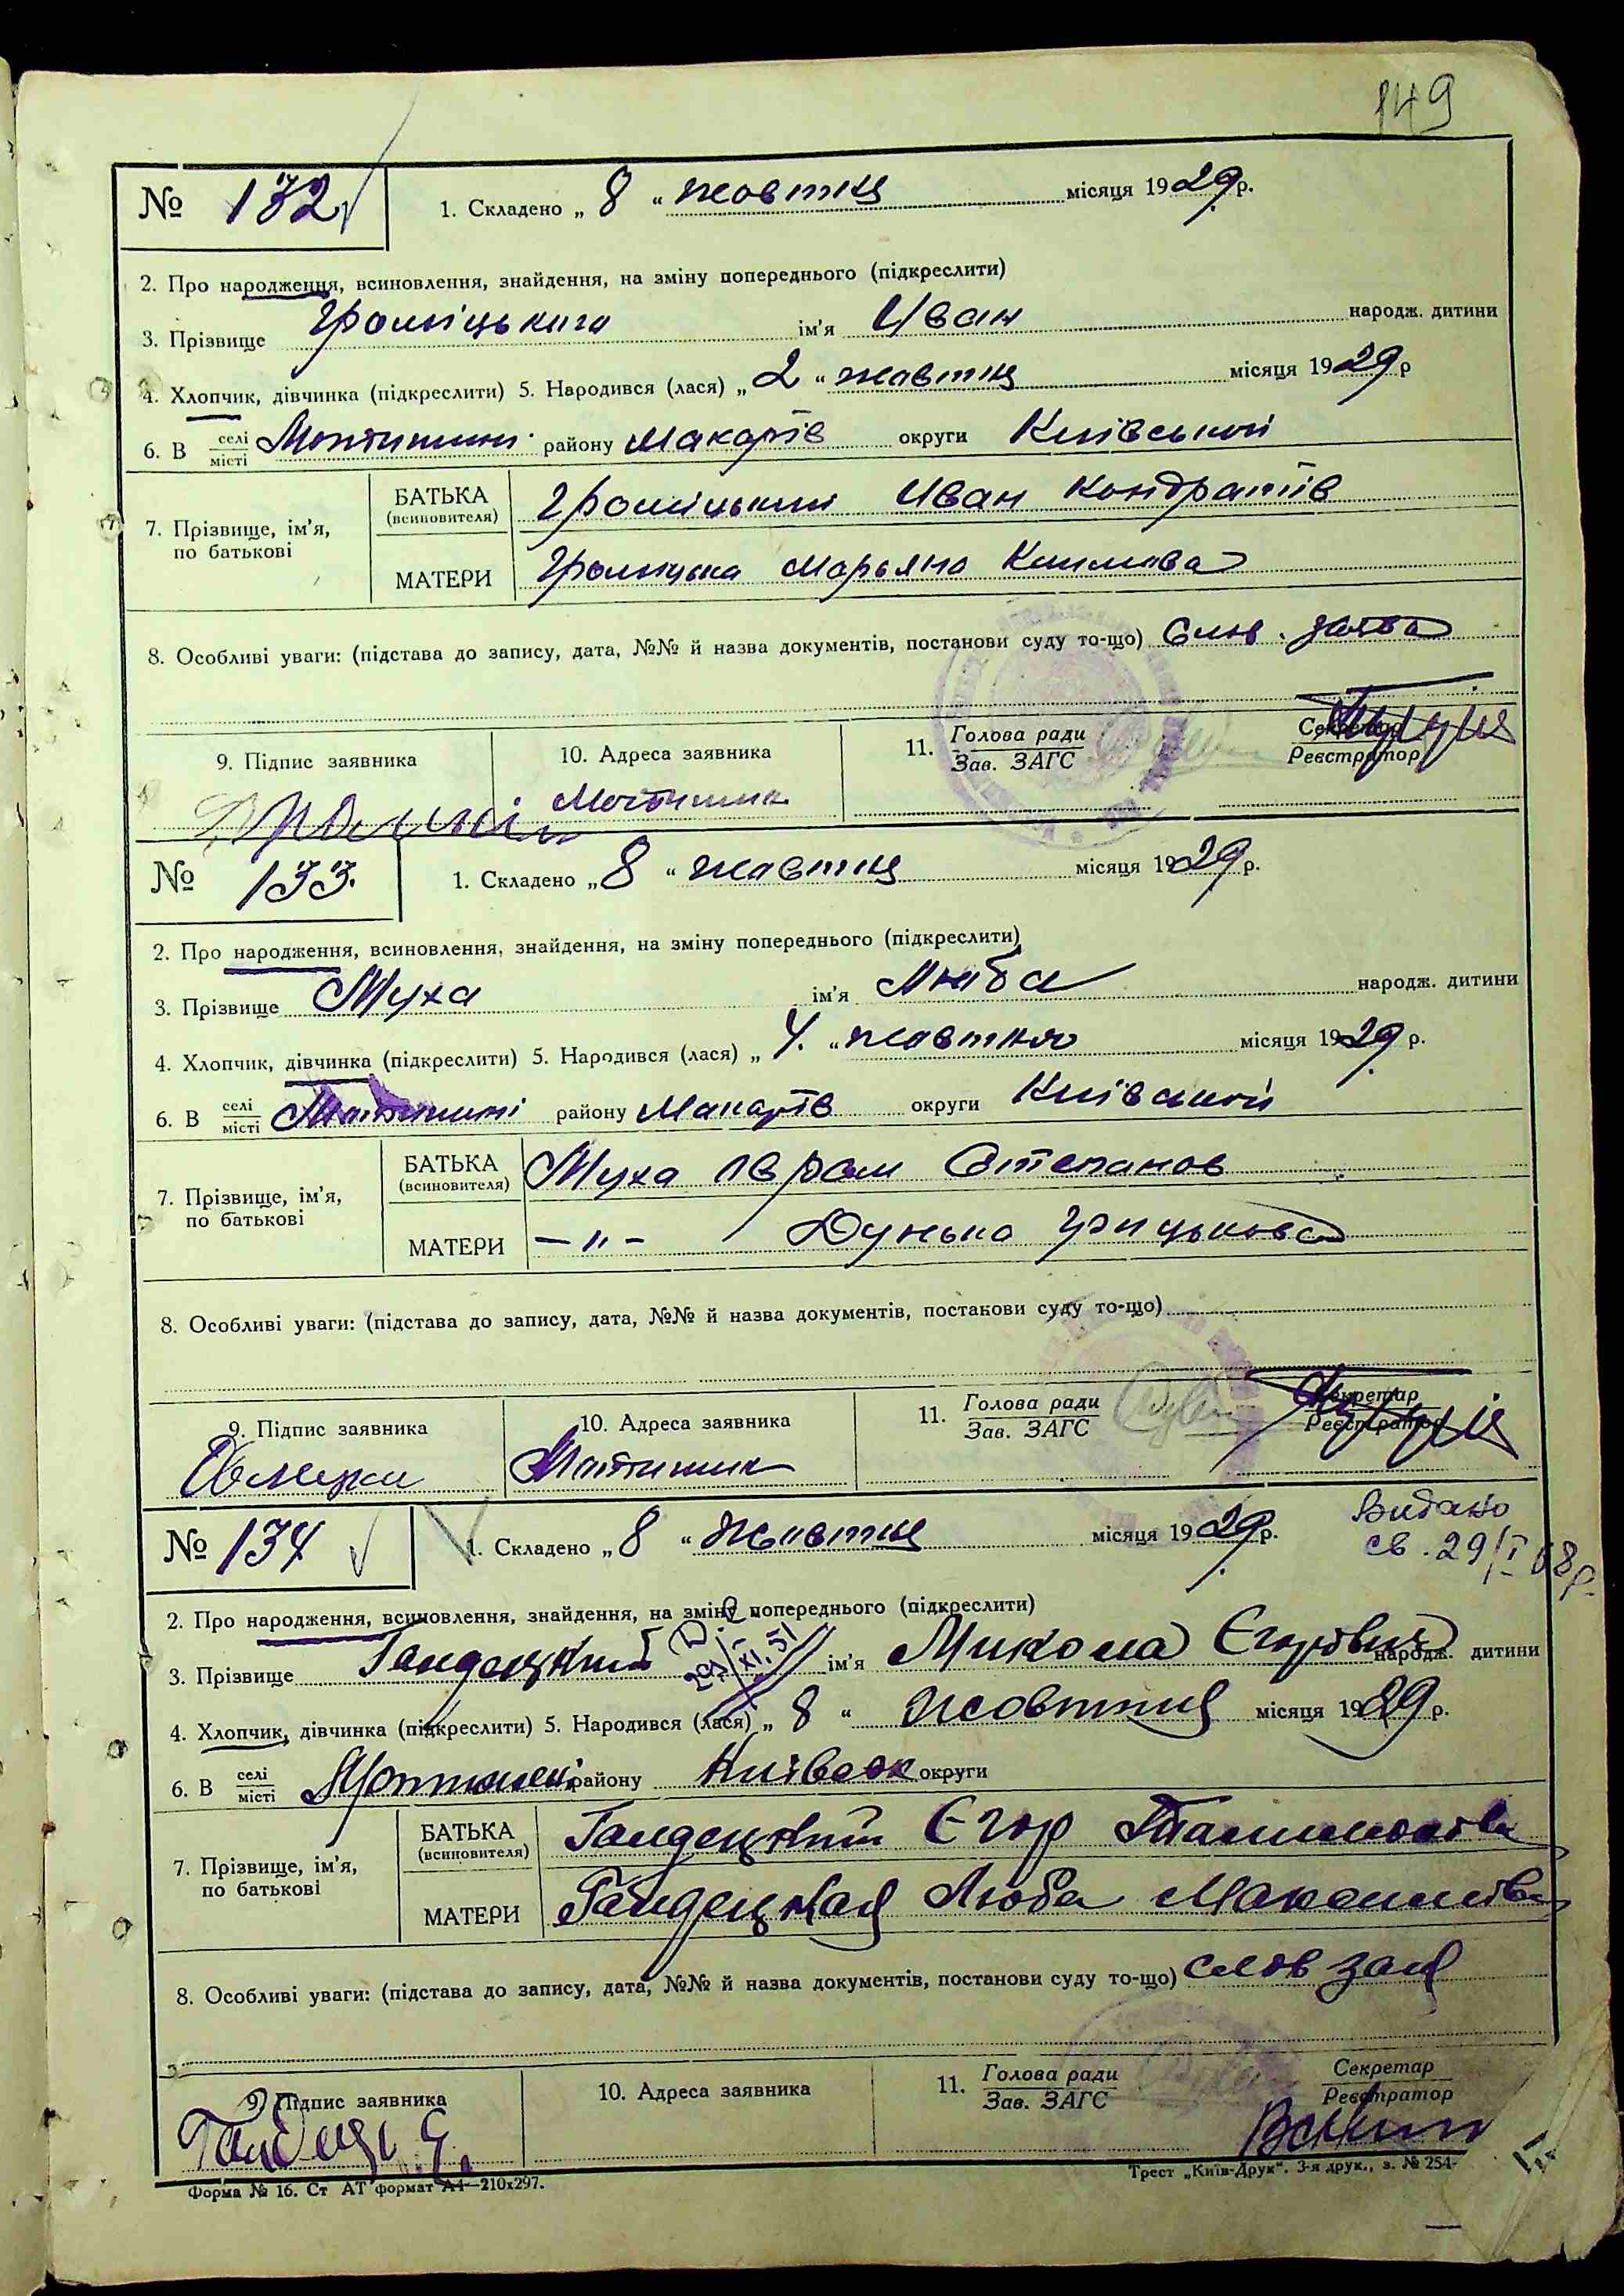 149
№ 132 1. Складено „ 8 “ жовтня місяця 1929 р.
2. Про народження, всиновлення, знайдення, на зміну попереднього (підкреслити)
3. Прізвище ім'я Иван народж. дитини
4. Хлопчик, дівчинка (підкреслити) 5. Народився (лася) „ 2 “ жовтня місяця 1929 р
6. В селі місті Мотижині району Макарів округи Київської
7. Прізвище, ім'я, по батькові
БАТЬКА (всиновителя) Иван Кондратів
МАТЕРИ Марьяна Климова
8. Особливі уваги: (підстава до запису, дата, №№ й назва документів, постанови суду то-що) Слов. заява
9. Підпис заявника 10. Адреса заявника 11. Голова ради Зав. ЗАГС Секретар Реєстратор
Мотижин
№ 133. 1. Складено „ 8 “ жовтня місяця 1929 р.
2. Про народження, всиновлення, знайдення, на зміну попереднього (підкреслити)
3. Прізвище Муха ім'я Люба народж. дитини
4. Хлопчик, дівчинка (підкреслити) 5. Народився (лася) „ 4. “ жовтня місяця 1929 р.
6. В селі місті Мотижині району Макарів округи Київської
7. Прізвище, ім'я, по батькові
БАТЬКА (всиновителя) Муха Аврам Степанов
МАТЕРИ — „ — Дунька Грицькова
8. Особливі уваги: (підстава до запису, дата, №№ й назва документів, постакови суду то-що)
9. Підпис заявника 10. Адреса заявника 11. Голова ради Зав. ЗАГС Секретар Реєстратор
Мотижин
Видано
св. 29/I 68р.
№ 134 1. Складено „ 8 “ жовтня місяця 1929 р.
2. Про народження, всиновлення, знайдення, на зміну попереднього (підкреслити)
3. Прізвище Гандецкий ім'я Микола Єгорович народж. дитини
4. Хлопчик, дівчинка (підкреслити) 5. Народився (лася) „ 8 “ жовтня місяця 1929 р.
6. В селі місті Мотижені району Київськ округи
7. Прізвище, ім'я, по батькові
БАТЬКА (всиновителя) Гандецкий Єгор
МАТЕРИ Гандецкая Люба Максимівна
8. Особливі уваги: (підстава до запису, дата, №№ й назва документів, постанови суду то-що) слов зая
9. Підпис заявника 10. Адреса заявника 11. Голова ради Зав. ЗАГС Секретар Реєстратор
Форма № 16. Ст АТ формат А4—210х297. Трест „Київ-Друк“. 3-я друк., з. № 254-